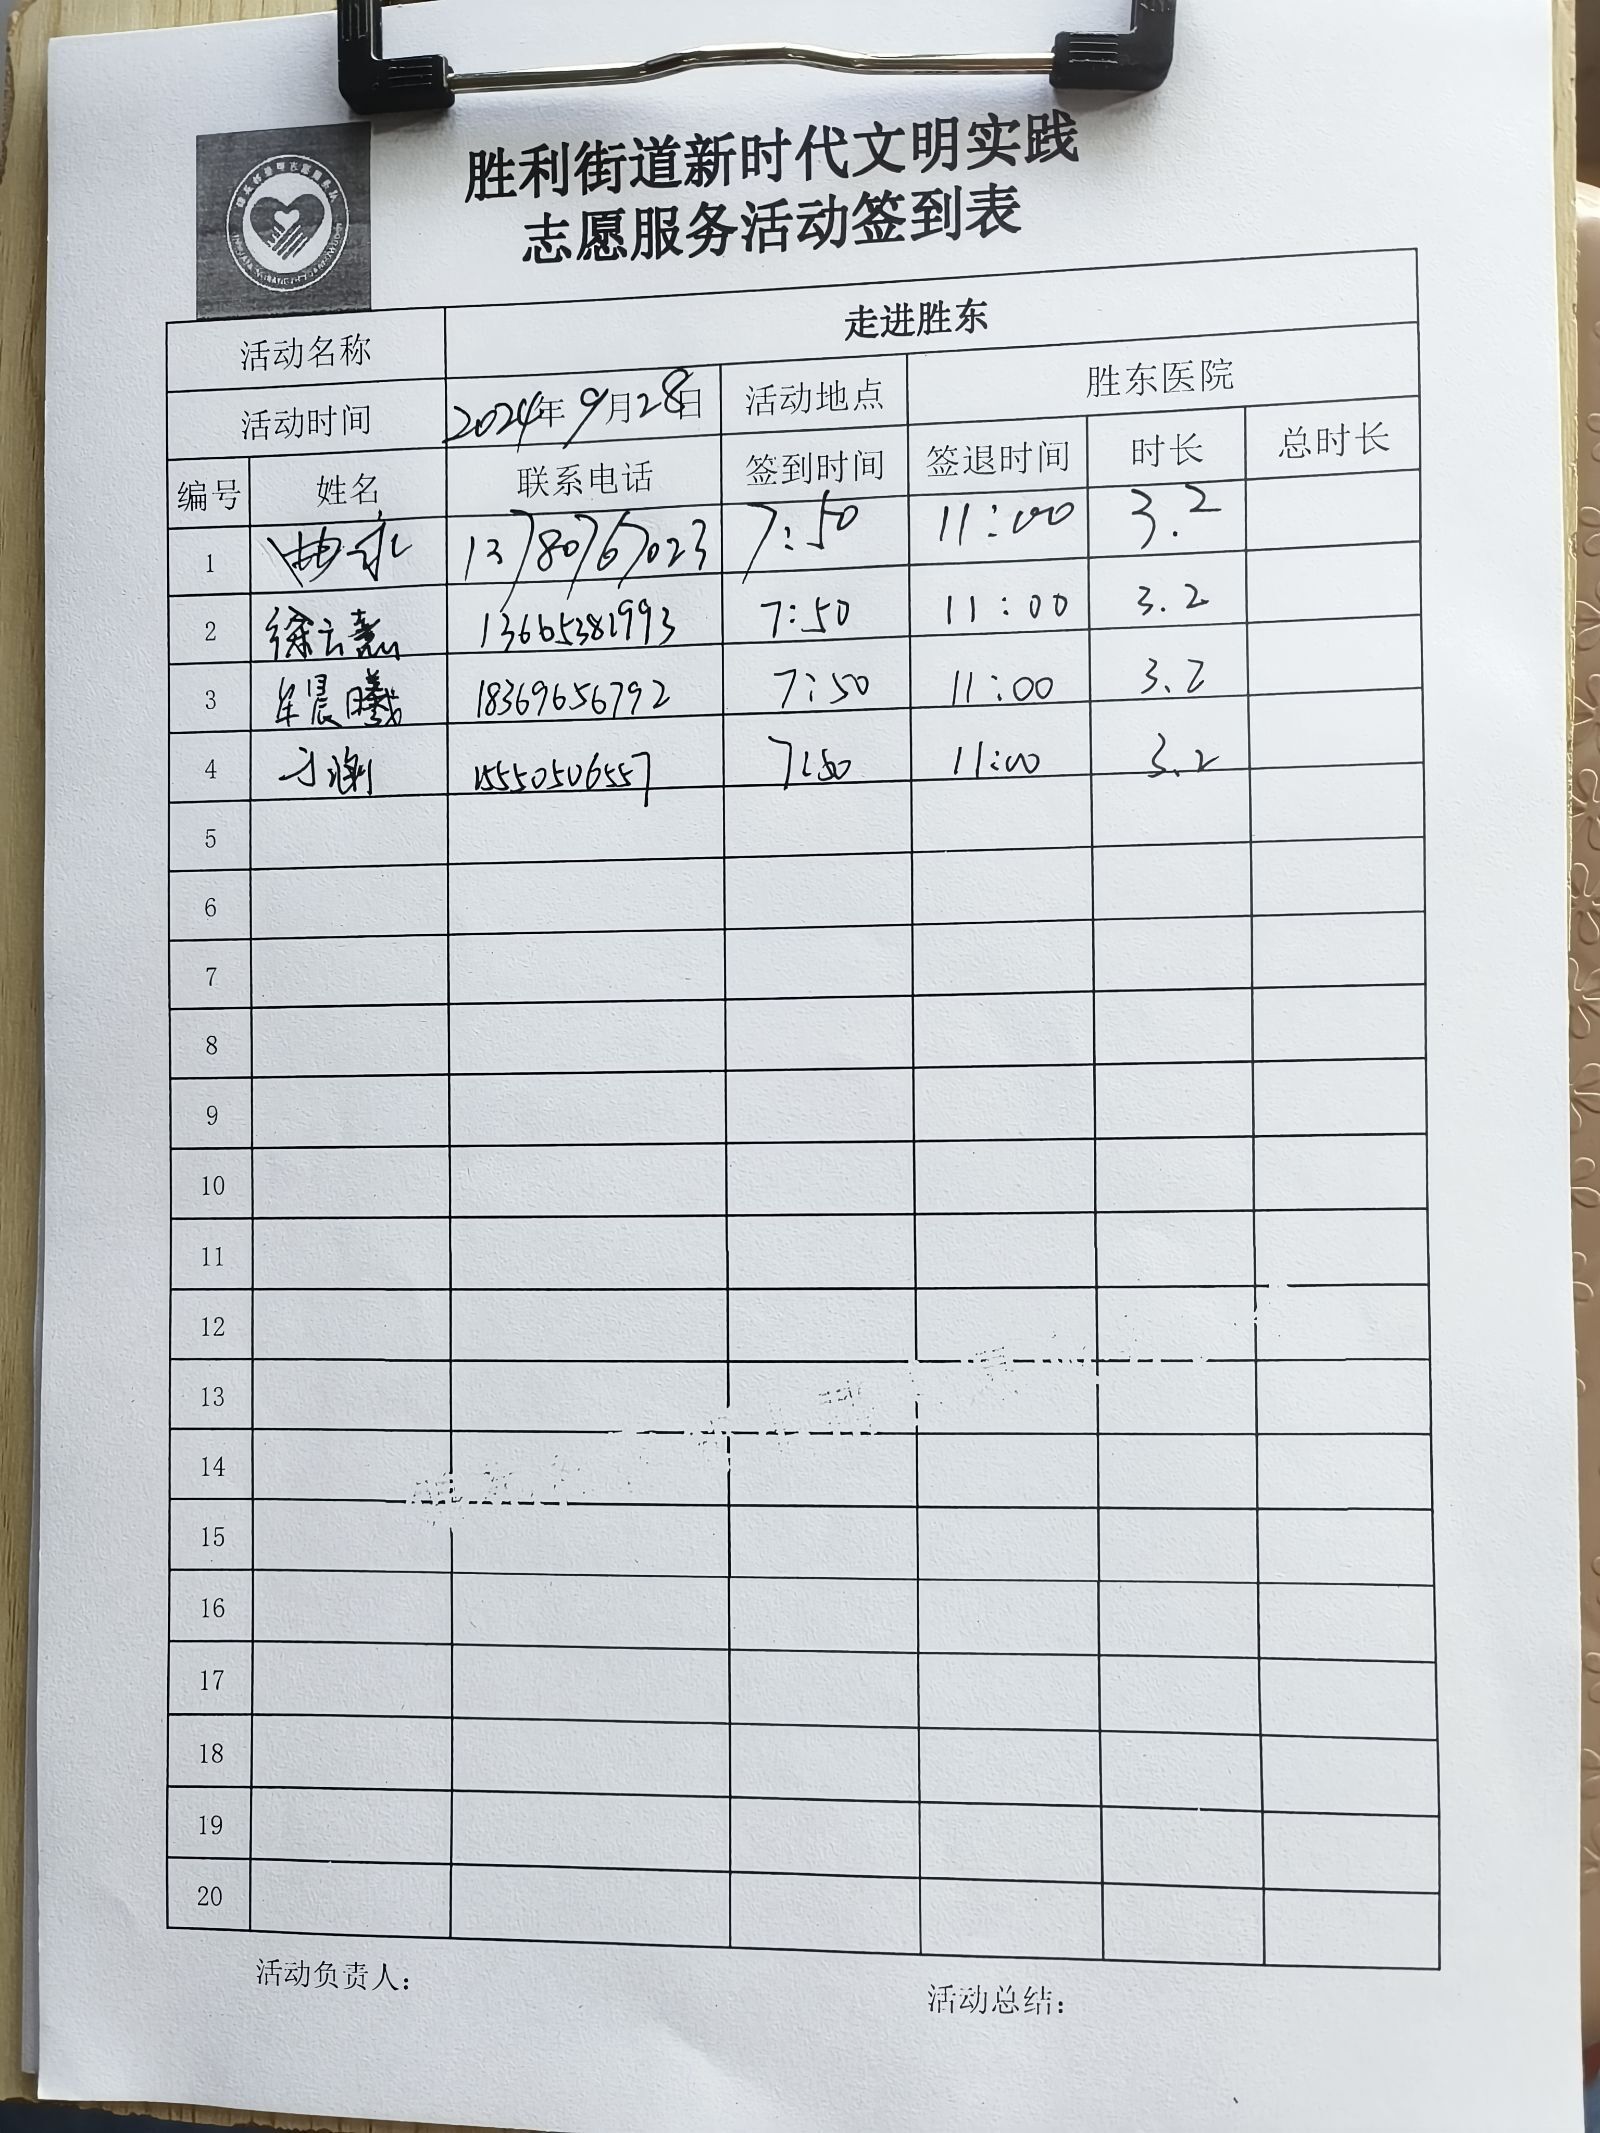 胜利街道新时代文明实践
志愿服务活动签到表
活动名称 走进胜东
活动时间 2024年9月28日 活动地点 胜东医院
编号 姓名 联系电话 签到时间 签退时间 时长 总时长
1 曲永 13780767023 7:50 11:00 3.2
2 徐云熹 13665381993 7:50 11:00 3.2
3 牟晨曦 18369656792 7:50 11:00 3.2
4 15550506557 7:50 11:00 3.2
5
6
7
8
9
10
11
12
13
14
15
16
17
18
19
20
活动负责人： 活动总结：